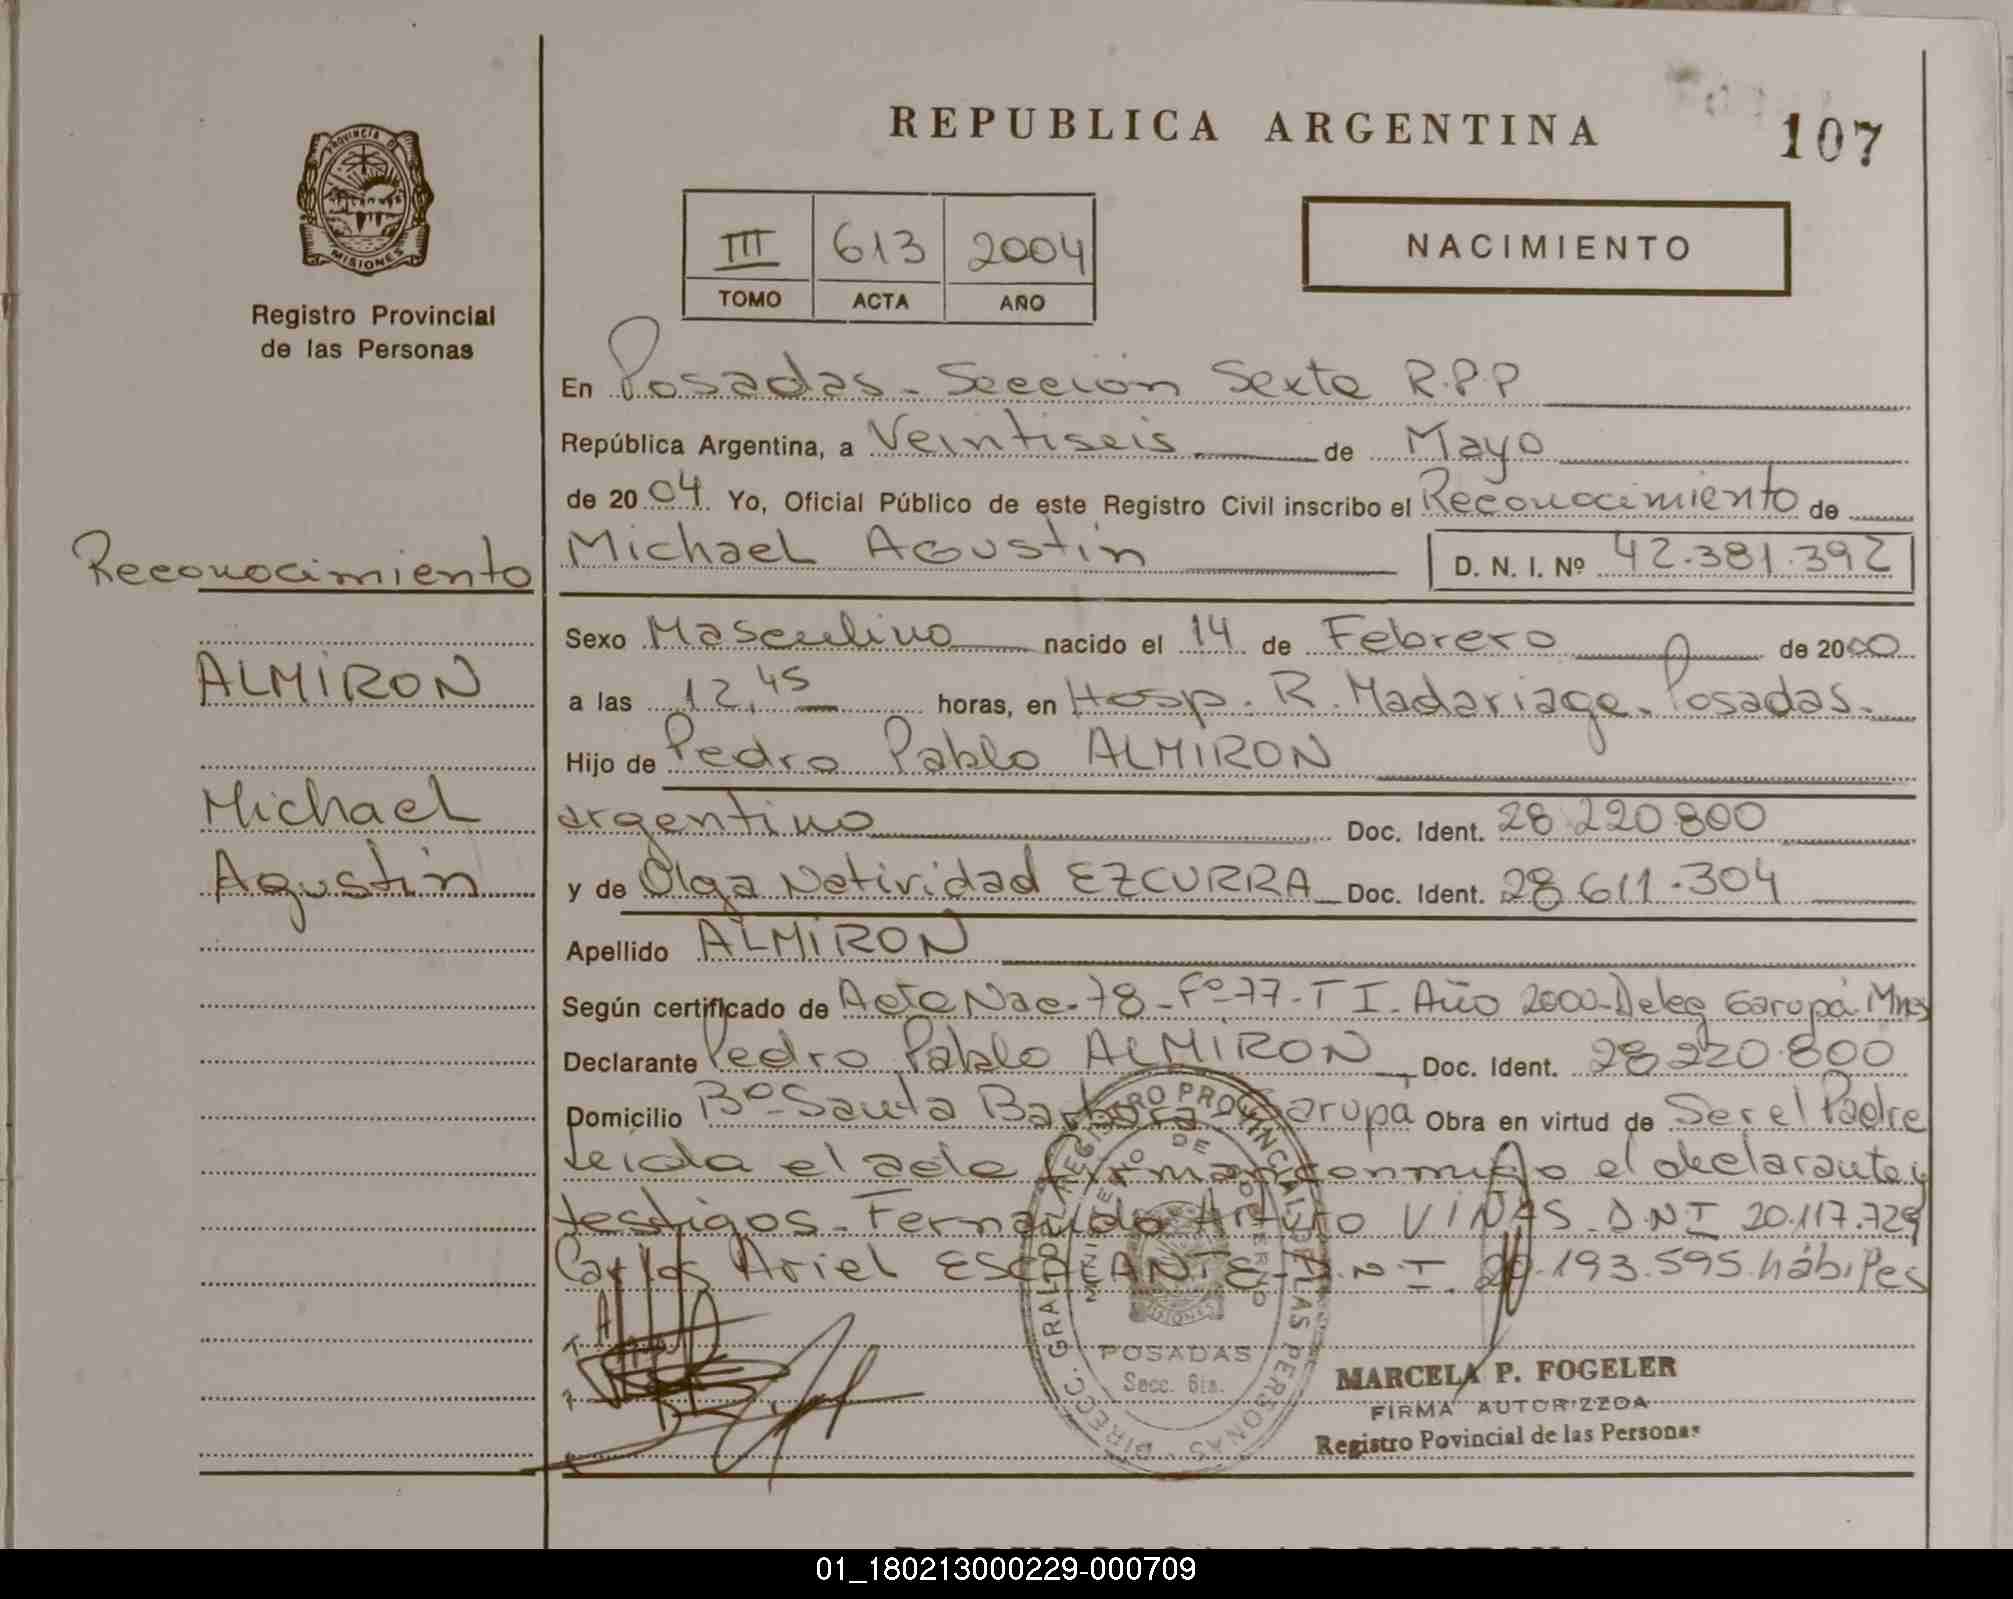 REPUBLICA ARGENTINA
107
PROVINCIA DE
MISIONES
Registro Provincial
de las Personas
III 613 2004
TOMO ACTA AÑO
NACIMIENTO
En Posadas - Seccion Sexta R.P.P
República Argentina, a Veintiseis de Mayo
de 2004. Yo, Oficial Público de este Registro Civil inscribo el Reconocimiento de
Reconocimiento
Michael Agustin D. N. I. Nº 42.381.392
Sexo Masculino nacido el 14 de Febrero de 2000
ALMIRON
a las 12,45 horas, en Hosp. R. Madariaga. Posadas.
Hijo de Pedro Pablo ALMIRON
Michael
argentino Doc. Ident. 28.220.800
Agustin
y de Olga Natividad EZCURRA Doc. Ident. 28.611.304
Apellido ALMIRON
Según certificado de Acta Nac. 78 - Fº 77 - T I. Año 2000 - Deleg Garupá Mnes
Declarante Pedro Pablo ALMIRON, Doc. Ident. 28.220.800
Domicilio Bº Santa Barbara Garupá Obra en virtud de Ser el Padre
Leida el acta firman conmigo el declarante y
testigos - Fernando Arturo VIÑAS - D.N.I 20.117.729
Carlos Ariel ESCALANTE D.N.I. 20.193.595 hábiles
DIRECC. GRAL DEL REGISTRO PROVINCIAL DE LAS PERSONAS
MINISTERIO DE GOBIERNO
MISIONES
POSADAS
Secc. 6ta.
MARCELA P. FOGELER
FIRMA AUTORIZZDA
Registro Povincial de las Personas
01_180213000229-000709